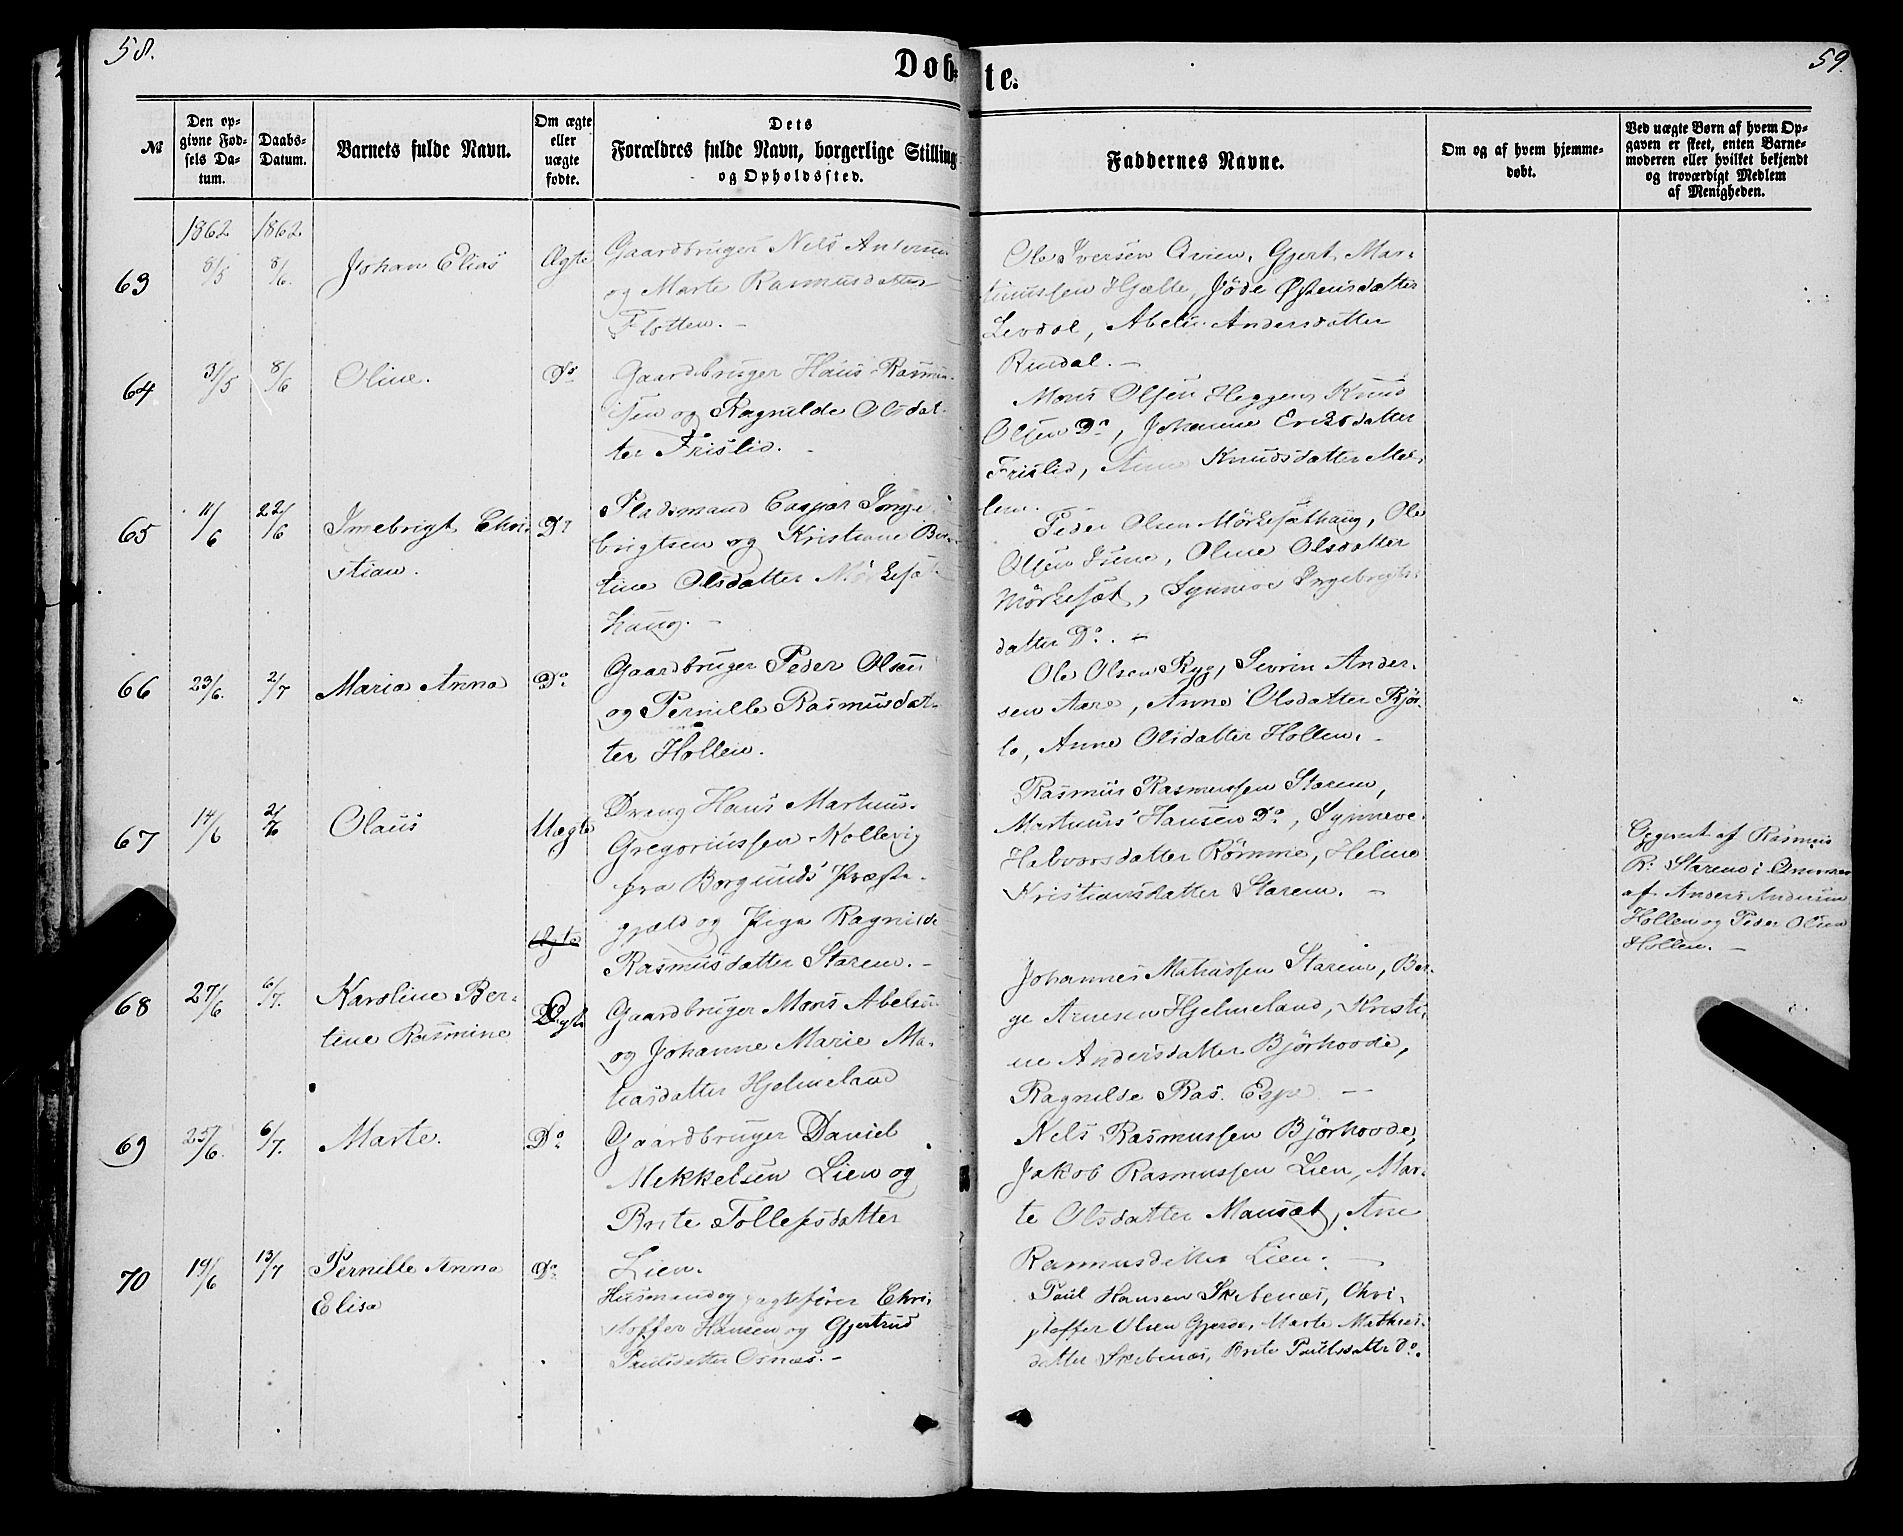 58.
59.
Døb-
te.
№
Den op-
givne Fød-
sels Da-
tum.
Daabs-
Datum.
Barnets fulde Navn.
Om ægte
eller
uægte
fødte.
Dets
Forældres fulde Navn, borgerlige Stilling
og Opholdssted.
Faddernes Navne.
Om og af hvem hjemme-
døbt.
Ved uægte Børn af hvem Op-
gaven er skeet, enten Barne-
moderen eller hvilket bekjendt
og troværdigt Medlem
af Menigheden.
1862 1862
63 8/5 8/6. Johan Elias Ægte
Gaardbruger Nels Antonsen
og Marte Rasmusdatter
Flotten. -
Ole Iversen Gjert Mar-
tinussen Hjelle, Jöde Østensdatter
Levdal, Abelu Andersdatter
Rindal. -
64 31/5 8/6 Oline. Do
Gaardbruger Hans Rasmu-
sen og Ragnilde Olsdat-
ter Frislid.
Mons Olsen Heggen, Knud
Olsen Do, Johanne Eriksdatter
Frislid, Anne Knudsdatter Mel-
lem. -
65 11/6 22/6 Imebrigt Chri- Do
stian.
Pladsmand Caspar Inge-
brigtsen og Kristiane Ber-
tine Olsdatter Mörkesæt-
haug. -
Peder Olsen Mörkesæthaug, Ole
Olsen Oline Olsdatter
Mörkesæt, Synneve Ingebrigts-
datter Do. -
66 23/6. 2/7 Maria Anna Do
Gaardbruger Peder Olsen
og Pernille Rasmusdat-
ter Hollen.
Ole Olsen Ryg, Sevrin Ander-
sen Aare, Anne Olsdatter
Anne Olsdatter Hollen. -
67 14/6 Olaus Uægte
Dreng Hans Martinus
Gregoriussen Kollevig
fra Borgunds Præste-
gjeld og Pige Ragnilde
Rasmusdatter Starem. -
Rasmus Rasmussen Starem,
Martinus Hansen Do, Synneve
Halvorsdatter Römme, Heline
Kristiansdatter Starem. -
Opgivet af Rasmus
R. Starem i
af Anders Andersen
Hollen og Peder Olsen
Hollen. -
68 27/6 6/7. Karoline Ber- Ægte
tine Rasmine
Gaardbruger Mons Abelsen
og Johanne Marie Ma-
tiasdatter Hjelmeland
Johannes Matiassen Starem, Ber-
ge Arnesen Hjelmeland, Kristi-
ne Andersdatter Björhovde,
Ragnilde Ras. Espe. -
69 25/6. 6/7. Marte. Do
Gaardbruger Daniel
Mekkelsen Lien og
Brite Tollefsdatter
Lien.
Nels Rasmussen Björhovde,
Jakob Rasmussen Lien, Mar-
te Olsdatter Mansæt, Ane
Rasmusdatter Lien. -
70 19/6 13/7 Pernille Anna Do
Elisa
Husmand og Chri-
stoffer Hansen og Gjertrud
Paulsdatter Osnæs. -
Paul Hansen Skibenæs, Chri-
stoffer Olsen Gjerde, Marte Mathias-
datter Skibenæs, Brite Paulsdatter Do.